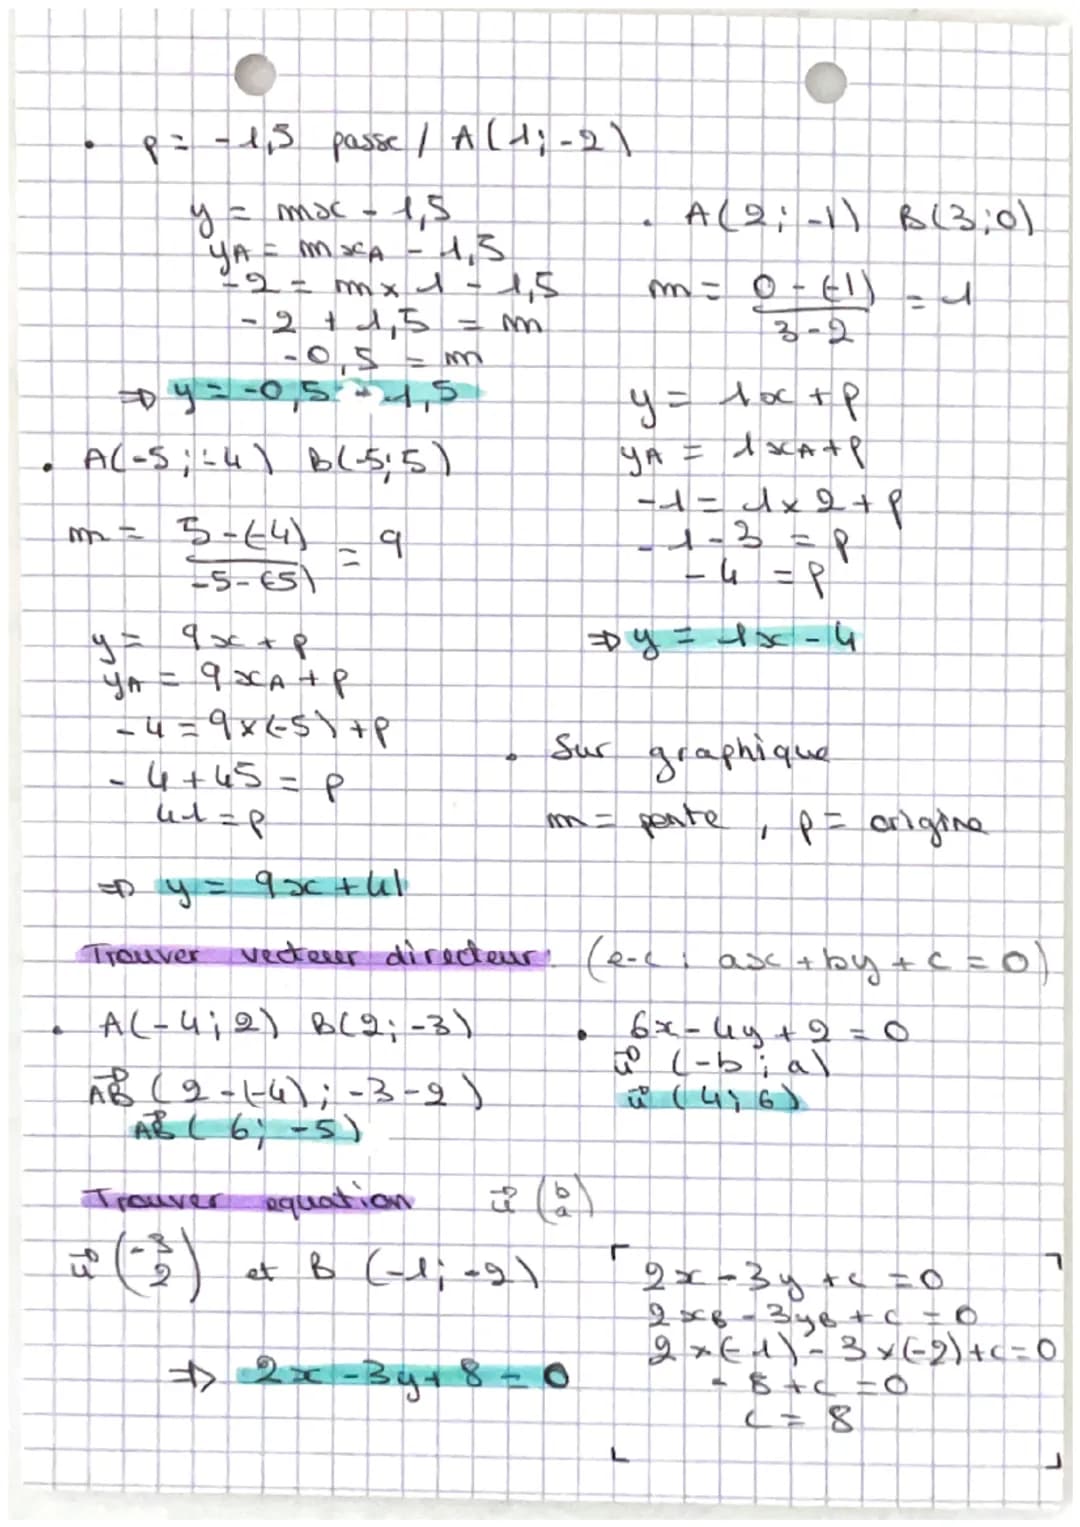 • p = -1,5 passe / A(1;-2)
y = mx - 1,5
yA = mxA - 1,5
-2 = m x 1 - 1,5
-2 + 1,5 = m
-0,5 = m
⇒ y = -0,5 - 1,5
• A(2;-1) B(3;0)
m = (0-(-1))/(3-2) = 1
y = 1x + p
yA = 1xA + p
-1 = 1x2 + p
-1-3 = p
-4 = p
⇒ y = 1x - 4
• A(-5;-4) B(-5;5)
m = (5-(-4))/(-5-(-5)) = 9
y = 9x + p
yA = 9xA + p
-4 = 9x(-5) + p
-4+45 = p
41 = p
⇒ y = 9x + 41
• Sur graphique
m = pente, p = origine
Trouver vecteur directeur: (e-c: ax + by + c = 0)
• A(-4;2) B(2;-3)
AB→ (2-(-4);-3-2)
AB→ (6;-5)
• 6x - 4y + 2 = 0
u→ (-b;a)
u→ (4;6)
Trouver equation u→ (b a)
u→ (-3 2) et B (-1;-2)
⇒ 2x - 3y + 8 = 0
2x - 3y + c = 0
2xB - 3yB + c = 0
2x(-1) - 3x(-2) + c = 0
- 8 + c = 0
c = 8